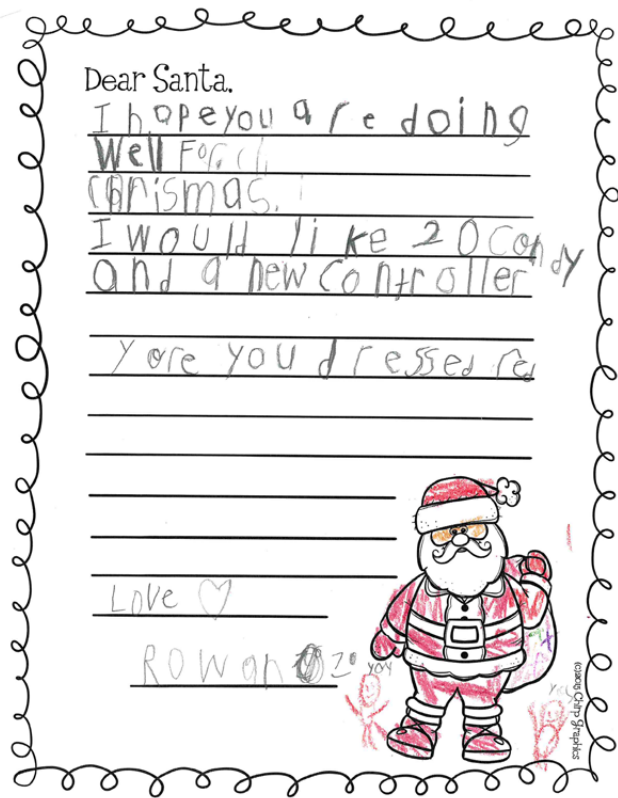 Dear Santa,
I hope you are doing
Well For
Chrismas.
I would like 20 candy
and a new controller
y are you dressed red
Love ♡
Rowan
yoy
(c)2015 Chirp Graphics